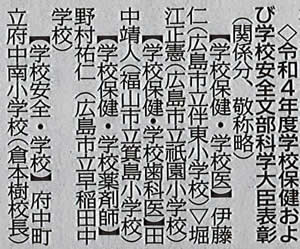 ◇令和4年度学校保健およ
び学校安全文部科学大臣表彰
(関係分、敬称略)
【学校保健・学校医】伊藤
仁(広島市立伴東小学校)▽堀
江正憲(広島市立祇園小学校)
【学校保健・学校歯科医】田
中靖人(福山市立箕島小学校)
【学校保健・学校薬剤師】
野村祐仁(広島市立早稲田中
学校)
【学校安全・学校】府中町
立府中南小学校(倉本樹校長)